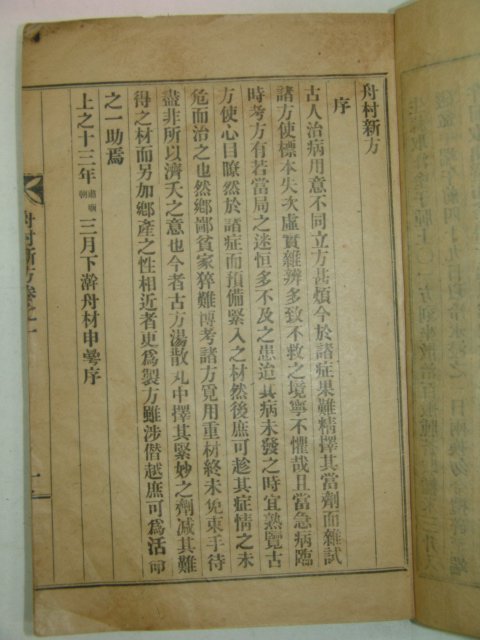 舟村新方
序
古人治病用意不同立方甚煩今於諸症果難精擇其當劑而雜試
諸方使標本失次虛實難辨多致不救之境寧不懼哉且當急病臨
時考方有若當局之迷恒多不及之患迨其病未發之時宜熟覽古
方使心目瞭然於諸症而預備緊入之材然後庶可趁其症情之未
危而治之也然鄕鄙貧家猝難博考諸方覓用重材終未免束手待
盡非所以濟夭之意也今者古方湯散丸中擇其緊妙之劑减其難
得之材而另加鄕產之性相近者更爲製方雖涉僭越庶可爲活命
之一助焉
上之十三年肅廟朝三月下澣舟村申曼序
舟村新方卷之一